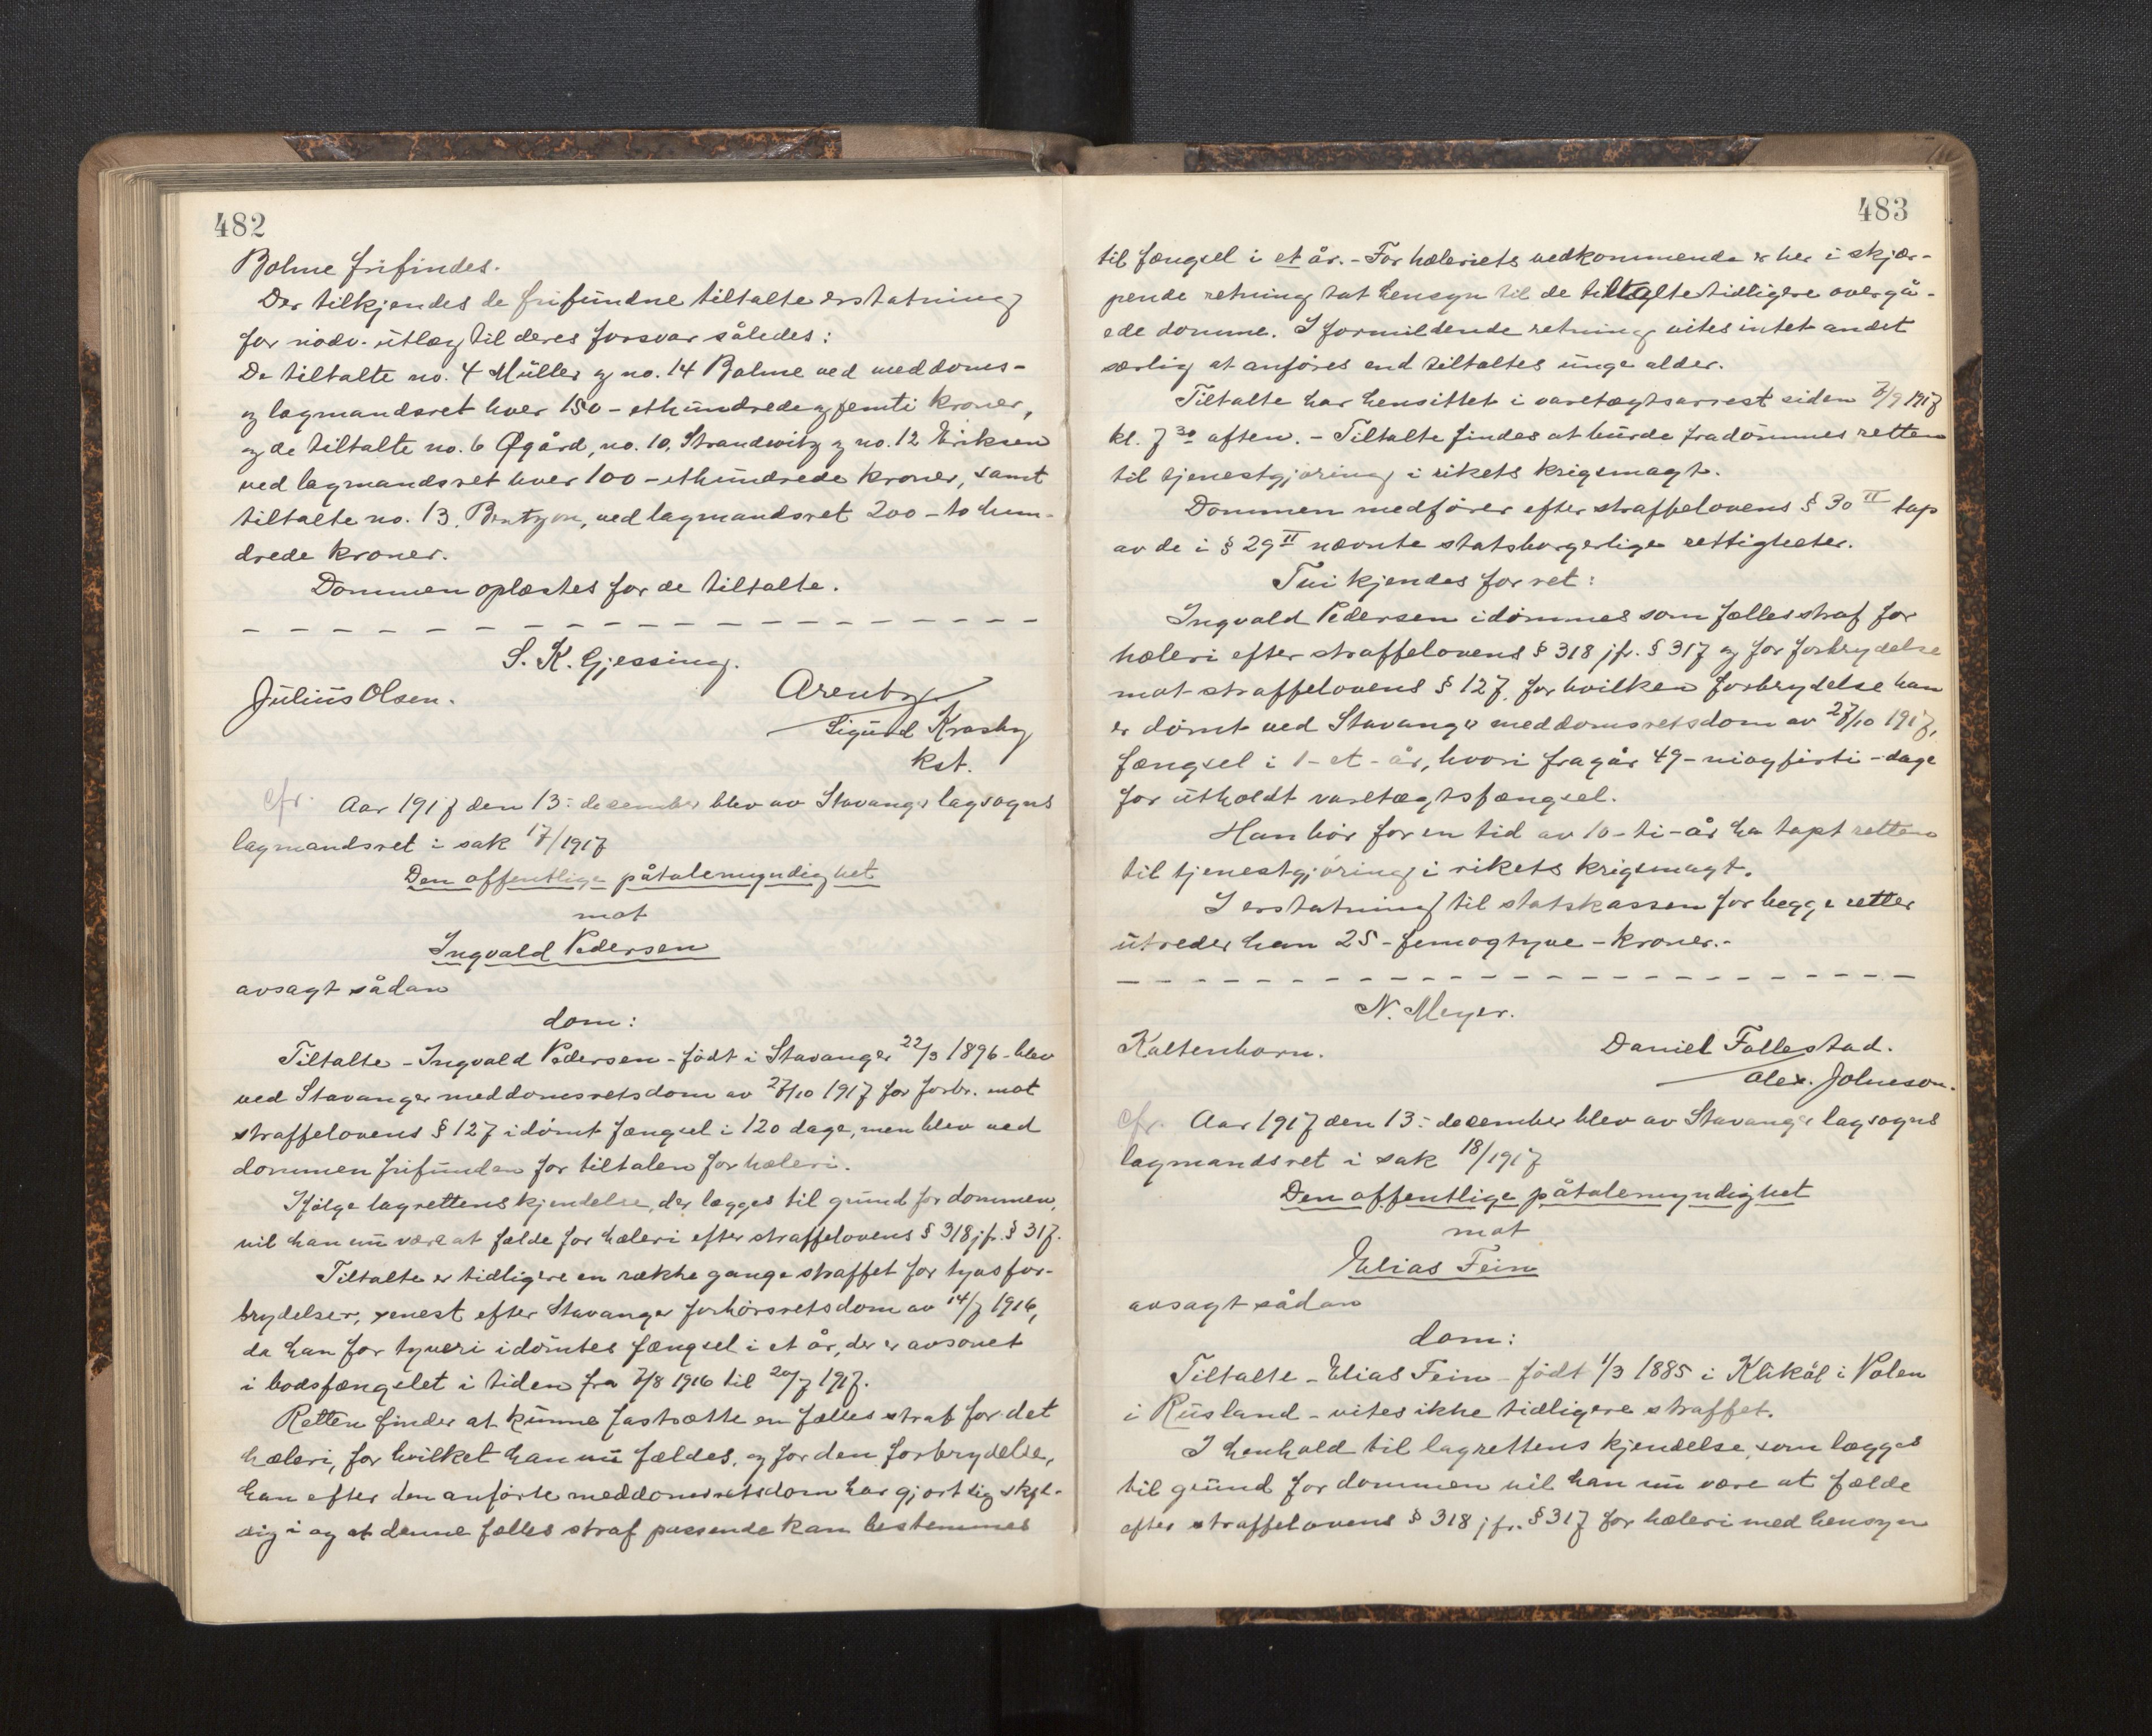 482
Bohne frifindes.
Der tilkjendes de frifundne tiltalte erstatning
for nødv. utlæg til deres forsvar således:
De tiltalte no. 4 Müller og no. 14 Bohne ved meddoms-
og lagmandsret hver 150 - ethundredeogfemti kroner,
og de tiltalte no. 6 Øgård, no. 10, Strandwitz og no. 12 Eriksen
ved lagmandsret hver 100 - ethundrede kroner, samt
tiltalte no. 13. Bentzon, ved lagmandsret 200 - to hun-
drede kroner.
Dommen oplæstes for de tiltalte.
S. K. Gjessing.
Julius Olsen.
Arentz
Sigurd Krosby
kst.
cfr. Aar 1917 den 13: december blev av Stavanger lagsogns
lagmandsret i sak 17/1917
Den offentlige påtalemyndighet
mot
Ingvald Pedersen
avsagt sådan
dom:
Tiltalte - Ingvald Pedersen - født i Stavanger 22/3 1896 - blev
ved Stavanger meddomsretsdom av 27/10 1917 for forbr. mot
straffelovens § 127 idømt fængsel i 120 dage, men blev ved
dommen frifunden for tiltalen for hæleri.
Ifølge lagrettens kjendelse, der lægges til grund for dommen,
vil han nu være at fælde for hæleri efter straffelovens § 318 jfr. § 317.
Tiltalte er tidligere en række gange straffet for tyvsfor-
brydelser, senest efter Stavanger forhørsretsdom av 14/7 1916,
da han for tyveri idømtes fængsel i et år, der er avsonet
i bodsfængslet i tiden fra 7/8 1916 til 20/7 1917.
Retten finder at kunne fastsætte en fælles straf for det
hæleri, for hvilket han nu fældes, og for den forbrydelse,
han efter den anførte meddomsretsdom har gjort sig skyl-
dig i og at denne fælles straf passende kan bestemmes
483
til fængsel i et år. - For hæleriets vedkommende er her i skjær-
pende retning tat hensyn til de tiltalte tidligere overgå-
ede domme. I formildende retning vites intet andet
særlig at anføres end tiltaltes unge alder.
Tiltalte har hensittet i varetægtsarrest siden 7/9 1917
kl. 7 30 aften. - Tiltalte findes at burde fradømmes retten
til tjenestgjøring i rikets krigsmagt.
Dommen medfører efter straffelovens § 30 II tap
av de i § 29 II nævnte statsborgerlige rettigheter.
Thi kjendes for ret:
Ingvald Pedersen idømmes som fællesstraf for
hæleri efter straffelovens § 318 jfr. § 317 og for forbrydelse
mot straffelovens § 127, for hvilken forbrydelse han
er dømt ved Stavanger meddomsretsdom av 27/10 1917,
fængsel i 1 - et - år, hvori fragår 49 - niogfirti - dage
for utholdt varetægtsfængsel.
Han bør for en tid av 10 - ti - år ha tapt retten
til tjenestgjøring i rikets krigsmagt.
I erstatning til statskassen for begge retter
utreder han 25 - femogtyve - kroner.-
N. Meyer.
Kaltenborn.
Daniel Follestad.
Alex. Johnson.
cfr. Aar 1917 den 13: december blev av Stavanger lagsogns
lagmandsret i sak 18/1917
Den offentlige påtalemyndighet
mot
Elias Fein
avsagt sådan
dom:
Tiltalte - Elias Fein - født 1/3 1885 i Klikól i Polen
i Rusland - vites ikke tidligere straffet.
I henhold til lagrettens kjendelse, som lægges
til grund for dommen vil han nu være at fælde
efter straffelovens § 318 jfr. § 317 for hæleri med hensyn